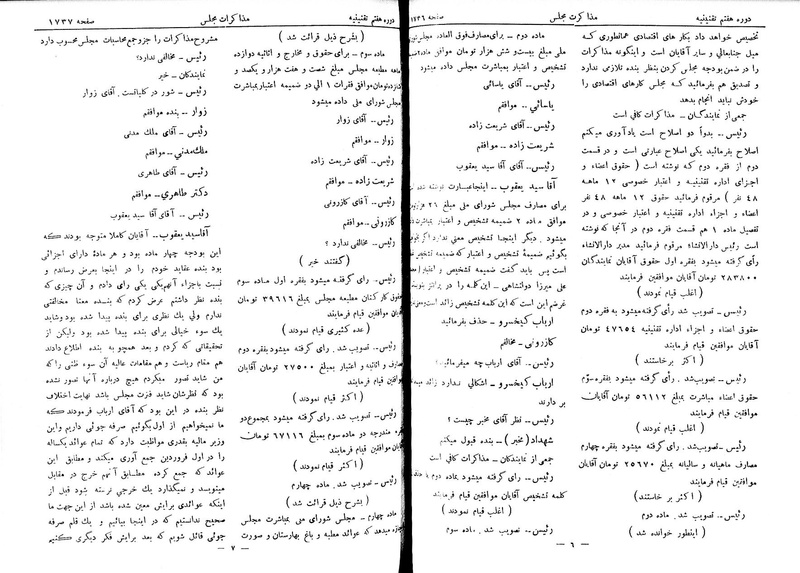 دوره هفتم تقنینیه
مذاکرت مجلس
صفحه ۱۷۳۶
تخصیص خواهد داد بکار های اقتصادی همانطوری که
میل جنابعالی و سایر آقایان است و اینگونه مذاکرات
را در ضمن بودجه مجلس کردن بنظر بنده تلازمی ندارد
و تصدیق هم بفرمائید که مجلس کارهای اقتصادی را
خودش نباید انجام بدهد
جمعی از نمایندگان ـ مذاکرات کافی است
رئیس ـ بدواً دو اصلاح است یادآوری میکنم
اصلاح بفرمائید یکی اصلاح عبارتی است و در قسمت
دوم از فقره دوم که نوشته است ( حقوق اعضاء و
اجزای اداره تقنینیه و اعتبار خصوصی ۱۲ ماهه
۴۸ نفر ) مرقوم فرمائید حقوق ۱۲ ماهه ۴۸ نفر
اعضاء و اجزاء اداره تقنینیه و اعتبار خصوصی و در
تفصیل ماده ۱ هم قسمت فقره دوم در آنجا که نوشته
است رئیس دارالانشاء مرقوم فرمائید مدیر دارالانشاء
رأی گرفته میشود بفقره اول حقوق آقایان نمایندگان
۲۸۳۸۰۰ تومان آقایان موافقین قیام فرمایند
( اغلب قیام نمودند )
رئیس ـ تصویب شد رأی گرفته میشود به فقره دوم
حقوق اعضاء و اجزاء اداره تقنینیه ۴۷۶۵۴ تومان
آقایان موافقین قیام فرمایند
( اکثر برخاستند )
رئیس ـ تصویب شد . رأی گرفته میشود بفقره سوّم
حقوق اعضاء مباشرت بمبلغ ۵۶۱۱۲ تومان آقایان
موافقین قیام فرمایند
( اغلب قیام نمودند )
رئیس ـ تصویب شد . رأی گرفته میشود بفقره چهارم
مصارف ماهیانه و سالیانه بمبلغ ۲۵۶۷۰ تومان آقایان
موافقین قیام فرمایند
( اکثر بر خاستند )
رئیس ـ تصویب شد . ماده دوم
( اینطور خوانده شد )
ماده دوم ـ برای مصارف فوق العاده مجلس
ملی مبلغ بیست و شش هزار تومان موافق
تشخیص و اعتبار بمباشرت مجلس داده میشود
رئیس ـ آقای یاسائی
یاسائی ـ موافقم
رئیس ـ آقای شریعت زاده
شریعت زاده ـ موافقم
رئیس ـ آقای آقا سید یعقوب
آقا سید یعقوب ـ اینجا عبارت نوشته شده
برای مصارف مجلس شورای ملی مبلغ ۲۶ هزار تومان
موافق ماده ۲ ضمیمه تشخیص و اعتبار بمباشرت
میشود . دیگر اینجا تشخیص معنی ندارد اگر
بگوئیم ضمیمهٔ تشخیص و اعتبار که ضمیمه
است پس باید گفت ضمیمه تشخیص و اعتبار
علی میرزا دولتشاهی ـ این کلمه را در
غرضم این است که این کلمه تشخیص زائد است
ارباب کیخسرو ـ حذف بفرمائید
کازرونی ـ مخالفم
رئیس ـ آقای ارباب چه میفرمائید ؟
ارباب کیخسرو ـ اشکالی ندارد زائد
بر دارند
رئیس ـ نظر آقای مخبر چیست ؟
شهداد ( مخبر ) ـ بنده قبول میکنم
جمعی از نمایندگان ـ مذاکرات کافی است
رئیس ـ رأی گرفته میشود بماده دوم با
کلمه تشخیص آقایان موافقین قیام فرمایند
( اغلب قیام نمودند )
رئیس ـ تصویب شد . ماده سوم
ـ ۶ ـ
دوره هفتم تقنینیه
مذاکرات مجلس
صفحه ۱۷۳۷
( بشرح ذیل قرائت شد )
ماده سوم ـ برای حقوق و مخارج و اثاثیه دوازده
ماهه مطبعه مجلس مبلغ شصت و هفت هزار و یکصد و
شانزده تومان موافق فقرات ۱ الی دو ضمیمه اعتبار بمباشرت
مجلس شورای ملی داده میشود
رئیس ـ آقای زوار
زوار ـ موافقم
رئیس ـ آقای شریعت زاده
شریعت زاده ـ موافقم
رئیس ـ آقای کازرونی
کازرونی ـ موافقم
رئیس ـ مخالفی ندارد ؟
( گفتند خیر )
رئیس ـ رای گرفته میشود بفقره اول ماده سوم
حقوق کارکنان مطبعه مجلس بمبلغ ۳۹۶۱۶ تومان
آقایان موافقین قیام فرمایند
( عده کثیری قیام نمودند )
رئیس ـ تصویب شد . رای گرفته میشود بفقره دوم
مصارف و اثاثیه و اعتبار بمبلغ ۲۷۵۰۰ تومان آقایان
موافقین قیام فرمایند
( اکثر قیام نمودند )
رئیس ـ تصویب شد . رای گرفته میشود بمجموع دو
فقره مندرجه دو ماده سوم بمبلغ ۶۷۱۱۶ تومان
آقایان موافقین قیام فرمایند
( اکثر قیام نمودند )
رئیس ـ تصویب شد . ماده چهارم
( بشرح ذیل قرائت شد )
ماده چهارم ـ مجلس شورای ملی بمباشرت مجلس
اجازه میدهد که عوائد مطبعه و باغ بهارستان و صورت
مشروح مذاکرات را جزو جمع محاسبات مجلس محسوب دارد
رئیس ـ مخالفی ندارد؟
نمایندگان ـ خیر
رئیس ـ شور در کلیاتست . آقای زوار
زوار ـ بنده موافقم
رئیس ـ آقای ملک مدنی
ملك مدنی ـ موافقم
رئیس ـ آقای طاهری
دکتر طاهری ـ موافقم
رئیس ـ آقای آقا سید یعقوب
آقا سید یعقوب ـ آقایان کاملا متوجه بودند که
این بودجه چهار ماده بود و هر مادهٔ دارای اجزائی
بود بنده عقاید خودم را در اینجا بعرض رساندم و
نسبت باجزاء آنهم یکی یکی رای دادم و آن چیزی که
بنده نظر داشتم عرض کردم که بنده معنا مخالفتی
ندارم ولی یك نظری برای بنده پیدا شده بود وشاید
یك سوء خیالی برای بنده پیدا شده بود ولیکن از
تحقیقاتی که کردم و بعد همچو به بنده اطلاع دادند
هم مقام ریاست و هم مقامات عالیه آن سوء ظنی را که
من شاید تصور میکردم هیچ درباره آنها تصور نشده
بود که نظرشان شاید قوت مجلس باشد نهایت اختلاف
نظر بنده در این بود که آقای ارباب فرمودند که
ما نمیخواهیم از اول بگوئیم صرفه جوئی داریم واین
وزیر مالیه بقدری مواظبت دارد که تمام عوائد یکساله
را در اول فروردین جمع آوری میکند و مطابق این
عوائد که جمع کرده مطابق آنهم خرج در مقابل
مینویسد و نمیگذارد یك خرجی نرسته شود قبل از
اینکه عوائدی برایش معین شده باشد از این جهت ما
صحیح ندانستیم که در اینجا بیائیم و یك قلم صرفه
جوئی قائل شویم که بعد برایش فکر دیگری کنیم
ـ ۷ ـ